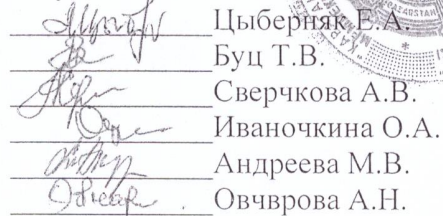 Цыберняк Е.А.
Буц Т.В.
Сверчкова А.В.
Иваночкина О.А.
Андреева М.В.
Овчврова А.Н.